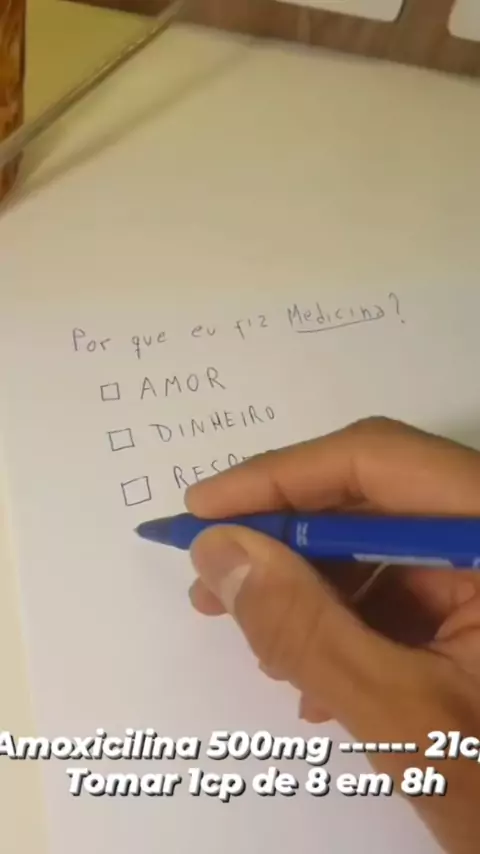 Por que eu fiz Medicina?
□ AMOR
□ DINHEIRO
□ RESPE
Amoxicilina 500mg ------ 21cp
Tomar 1cp de 8 em 8h